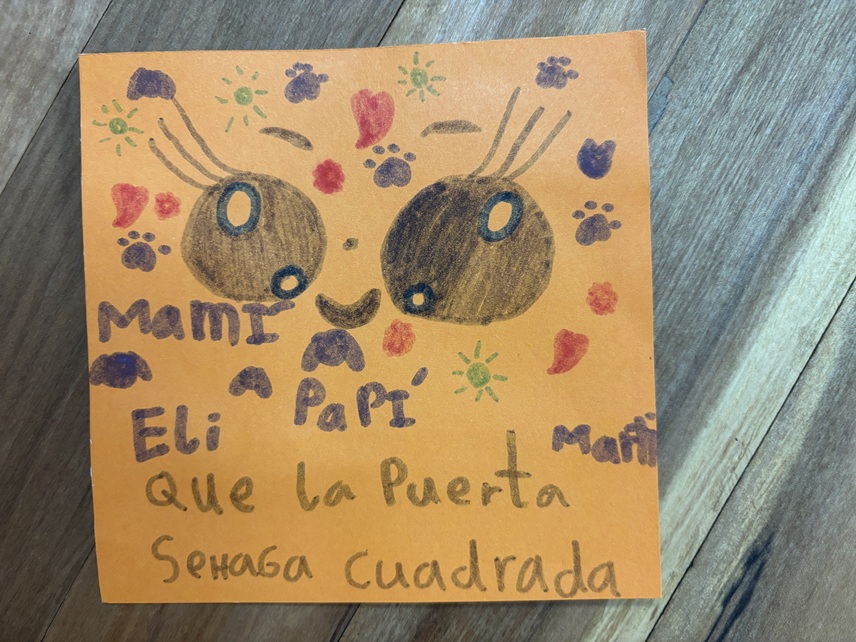 Mamí
Papí
Eli
Que la Puerta
SeHaGa cuadrada